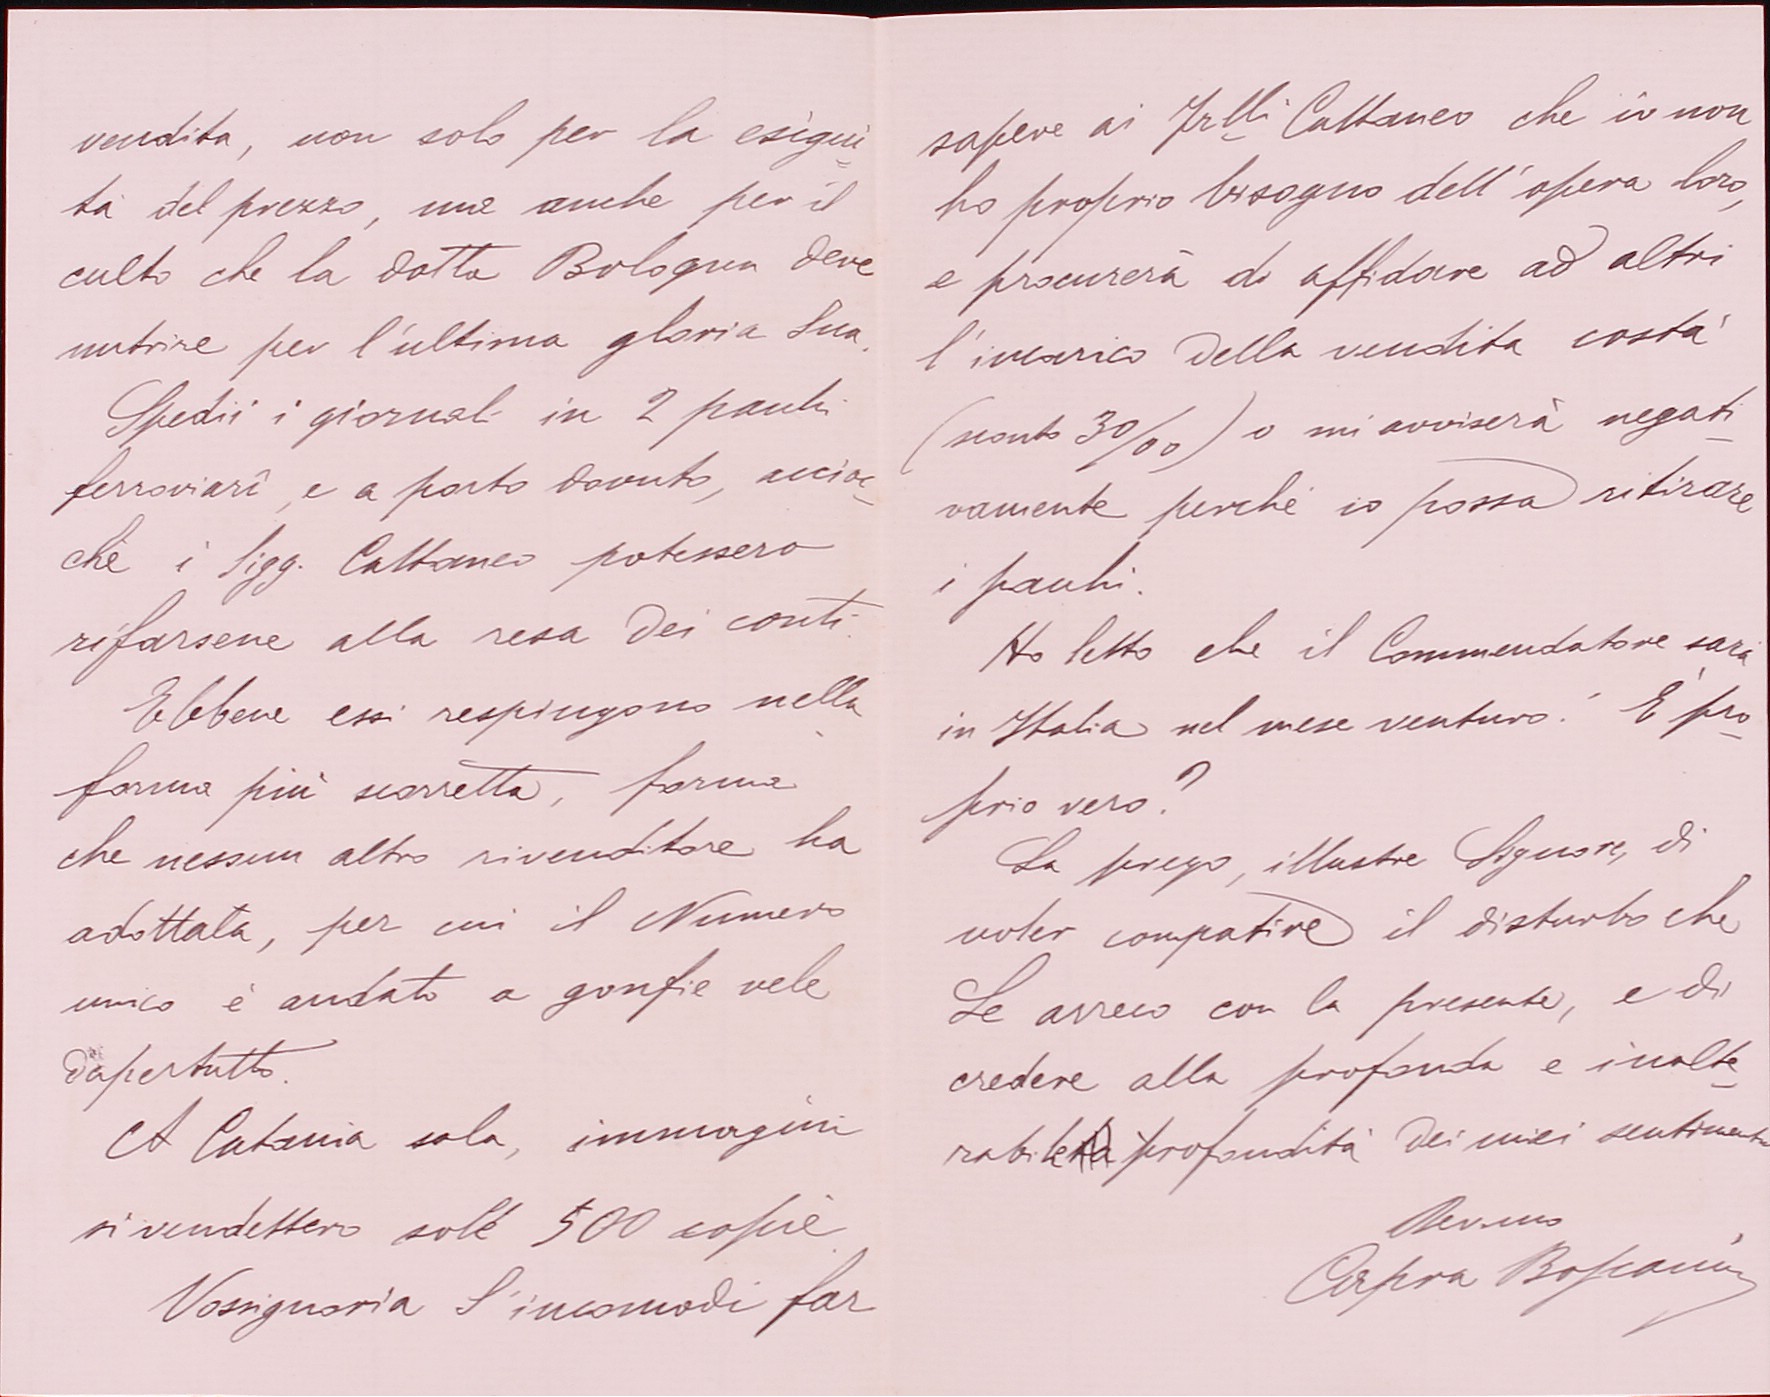 vendita, non solo per la esigui-
tà del prezzo, ma anche per il
culto che la dotta Bologna deve
nutrire per l'ultima gloria Sua.
Spedii i giornali in 2 pacchi
ferroviarî, e a porto dovuto, accioc-
chè i Sigg. Cattaneo potessero
rifarsene alla resa dei conti.
Ebbene essi respingono nella
forma più scorretta, forma
che nessun altro rivenditore ha
adottata, per cui il Numero
unico è andato a gonfie vele
dapertutto.
A Catania sola, immagini
si vendettero sole 500 copie.
Vossignoria S'incomodi far
sapere ai Frlli Cattaneo che io non
ho proprio bisogno dell'opera loro,
e procurerà di affidare ad altri
l'incarico della vendita costà
(sconto 30/00) o mi avviserà negati-
vamente perché io possa ritirare
i pacchi.
Ho letto che il Commendatore sarà
in Italia nel mese venturo! È pro-
prio vero?
La prego, illustre Signore, di
voler compatire il disturbo che
Le arreco con la presente, e di
credere alla profonda e inalte-
rabile profondità dei miei sentimenti
Dev.mo